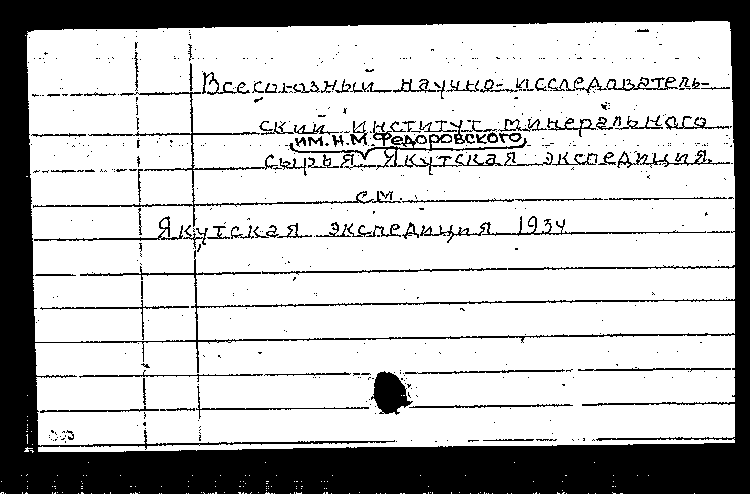 Всесоюзный научно-исследователь-
ский институт минерального
им. Н.М Федоровского,
сырья Якутская экспедиция.
см.
Якутская экспедиция 1934